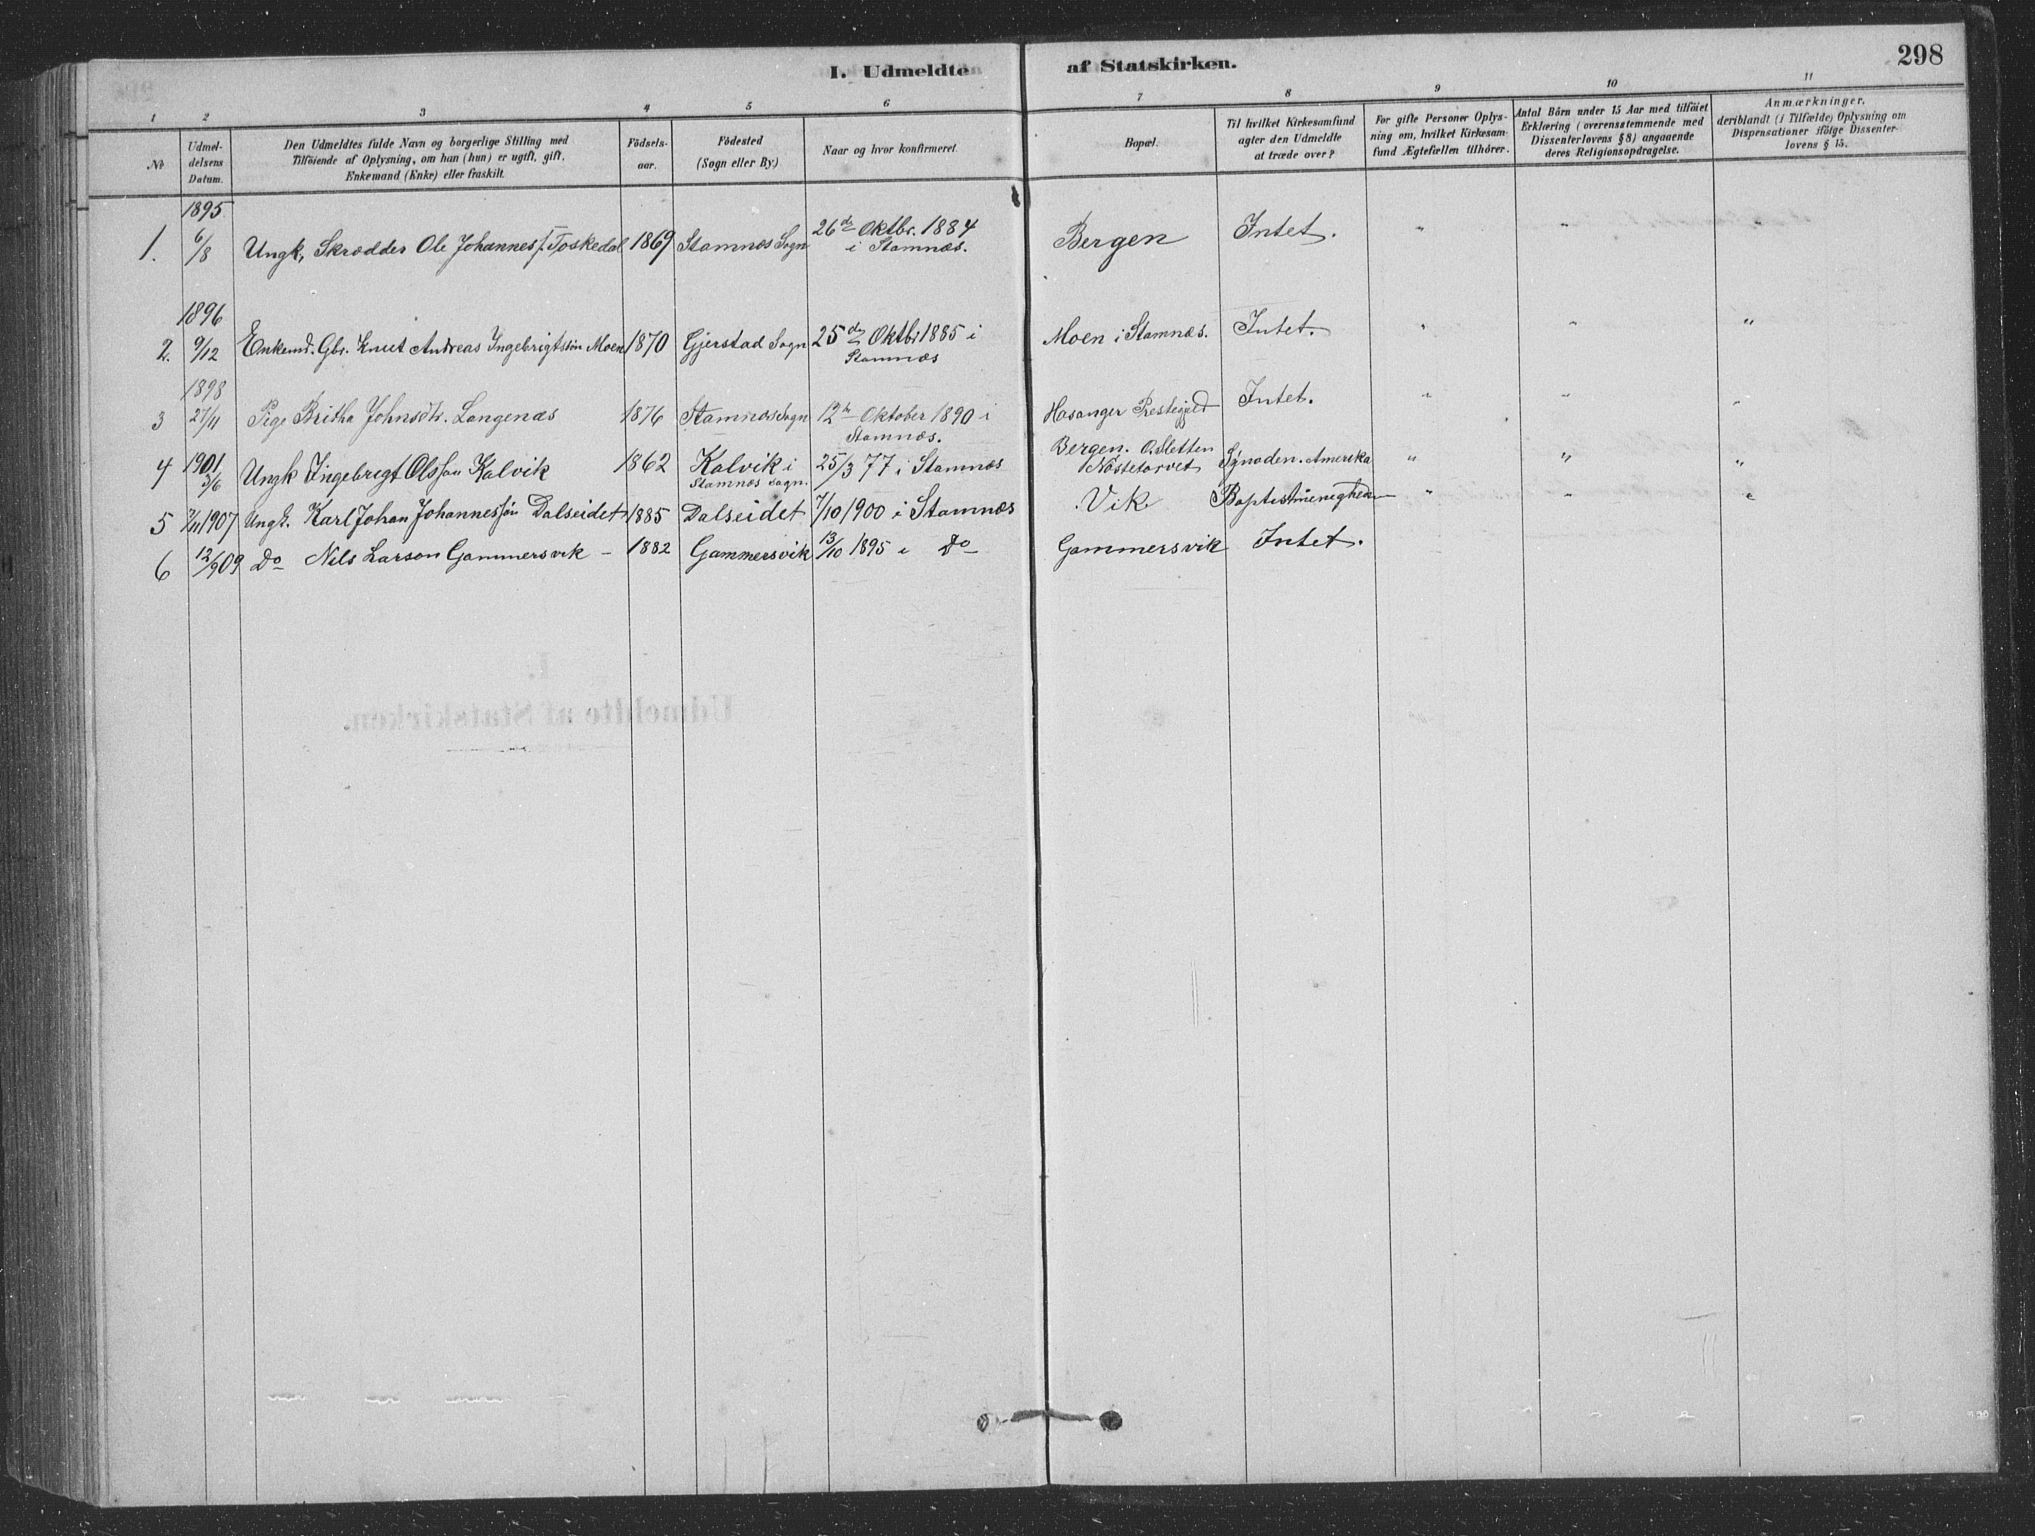 I. Udmeldte af Statskirken. 298
1 2 3 4 5 6 7 8 9 10 11
No
Udmeldelsens Datum.
Den Udmeldtes fulde Navn og borgerlige Stilling med
Tilföiende af Oplysning, om han (hun) er ugift, gift,
Enkemand (Enke) eller fraskilt.
Födselsaar.
Födested
(Sogn eller By.)
Naar og hvor konfirmeret
Bopæl.
Til hvilket Kirkesamfund
agter den Udmeldte
at træde over?
For gifte Personer Oplysning om, hvilket Kirkesamfund Ægtefællen tilhörer.
Antal Börn under 15 Aar med tilföiet
Erklæring (overensstemmende med
Dissenterlovens § 8) angaaende
deres Religionsopdragelse.
Anmærkninger,
deriblandt (i Tilfælde) Oplysning om
Dispensationer ifölge Dissenterlovens § 15.
1895
1. 6/8 Ungk, Skrædder Ole Johanness. Toskedal 1869 Stamnæs Sogn 26de Oktbr. 1884 i Stamnæs. Bergen Intet. " "
1896
2. 9/12 Enkemd. Gbr. Knut Andreas Ingebrigtssön Moen 1870 Gjerstad Sogn 25de Oktbr 1885 i Stamnæs Moen i Stamnæs. Intet. " " "
1898
3 27/11 Pige Britha Johnsdtr. Langenæs 1876 Stamnæs Sogn 12te Oktober 1890 i Stamnæs. Hosanger Prestegjeld Intet. " " "
4 1901 3/6 Ungk Ingebrigt Olsson Kalvik 1862 Kalvik i Stamnæs sogn. 25/3 77 i Stamnæs Bergen. O. Sletten Nöstetorvet Synoden. Amerika " " "
5 7/11 1907 Ungk. Karl Johan Johannessön Dalseidet 1885 Dalseidet 7/10 1900 i Stamnæs Vik Baptistmenigheden " " "
6 12/9 09 Do Nils Larson Gammersvik – 1882 Gammersvik 13/10 1895 i Do Gammersvik Intet.